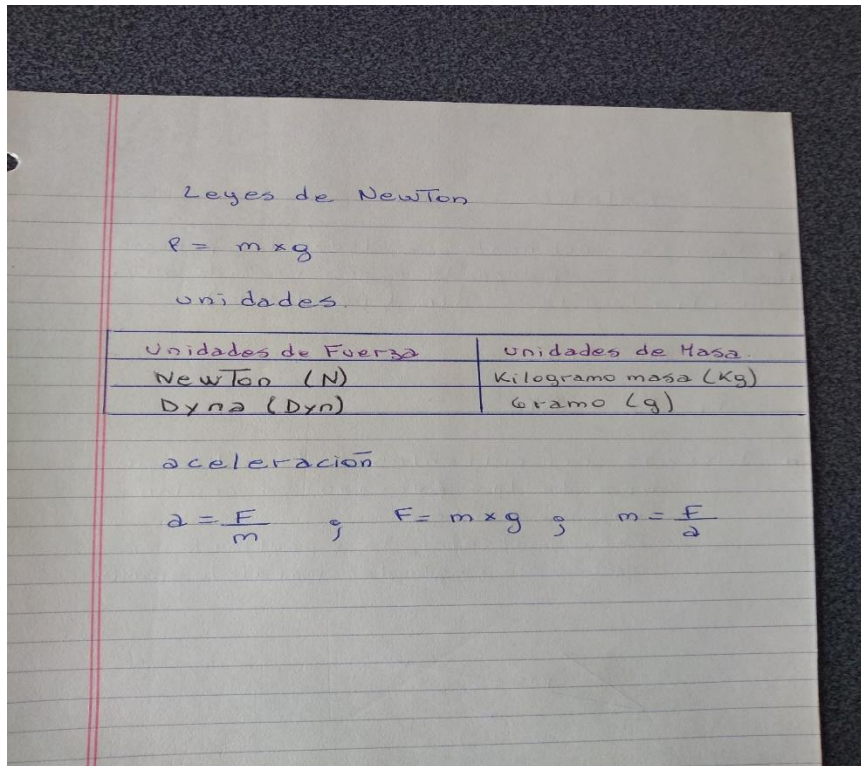 Leyes de NewTon
P = m x g
unidades.
Unidades de Fuerza unidades de Masa
NewTon (N) Kilogramo masa (Kg)
Dyna (Dyn) Gramo (g)
aceleración
a = F/m ; F = m x g ; m = F/a